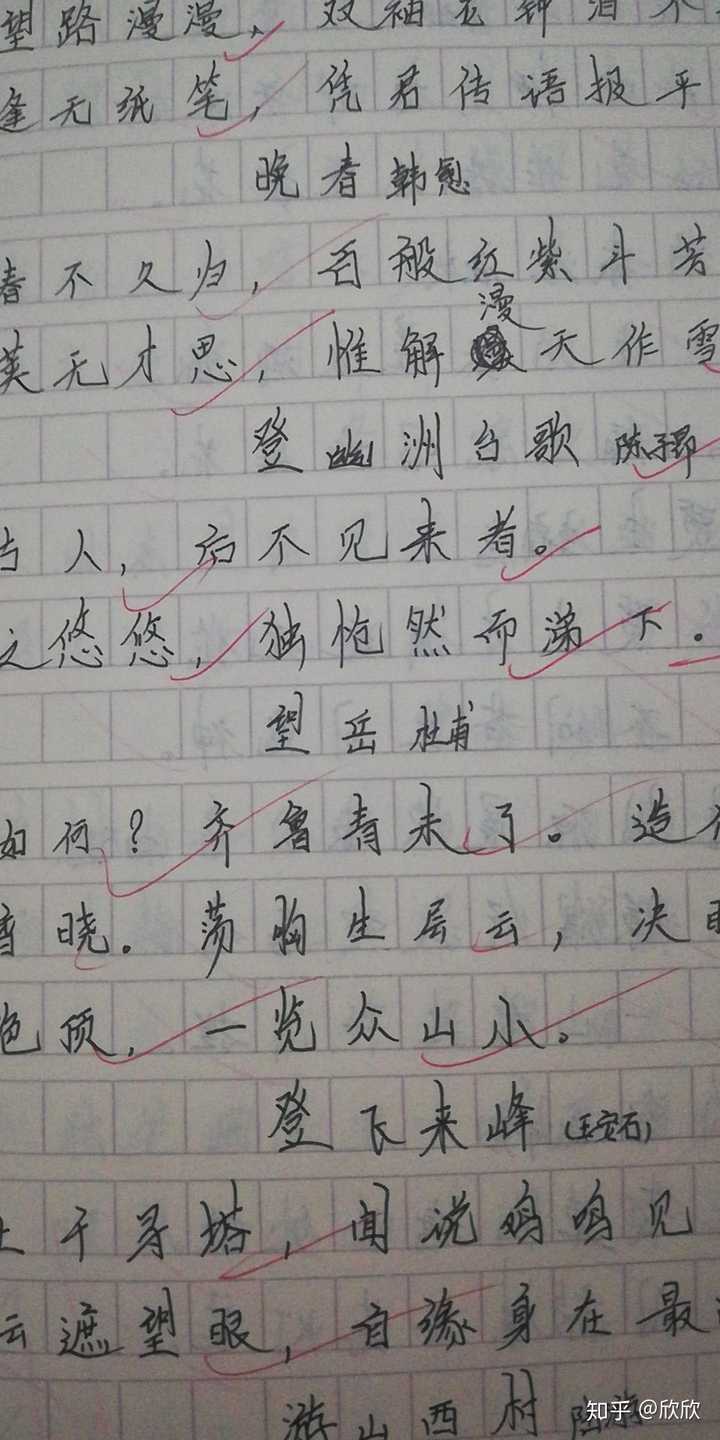 望路漫漫，双袖龙钟泪不
逢无纸笔，凭君传语报平
晚春 韩愈
春不久归，百般红紫斗芳
英无才思，惟解漫天作雪
登幽洲台歌 陈子昂
古人，后不见来者。
之悠悠，独怆然而涕下。
望岳 杜甫
如何？齐鲁青未了。造
晓。荡胸生层云，决
绝顶，一览众山小。
登飞来峰（王安石）
上千寻塔，闻说鸡鸣见
云遮望眼，自缘身在最
游山西村 陆游
知乎 @欣欣